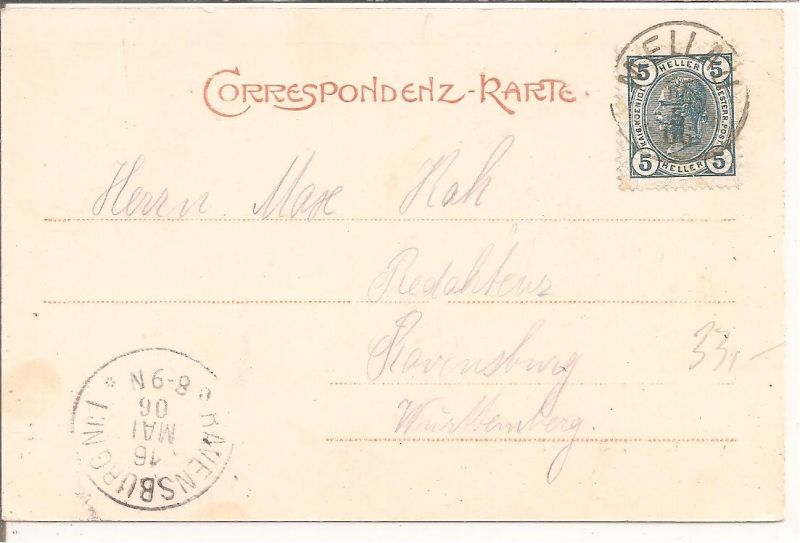 CORRESPONDENZ-KARTE.
MELLAU
5 HELLER 5
KAIS. KOENIGL. OESTERR. POST
5 HELLER 5
Herrn Max
Redakteur
Ravensburg 33,-
Württemberg.
RAVENSBURG
16
MAI
06
8-9N